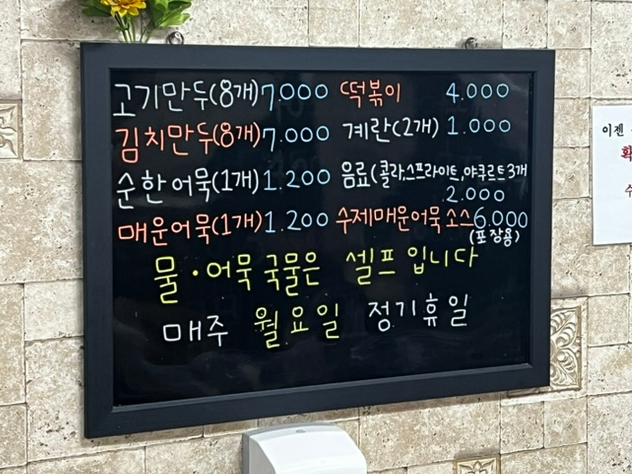 고기만두(8개) 7.000 떡볶이 4.000
김치만두(8개) 7.000 계란(2개) 1.000
순한어묵(1개) 1.200 음료(콜라,스프라이트,야쿠르트3개
2.000
매운어묵(1개) 1.200 수제매운어묵소스 6.000
(포장용)
물·어묵국물은 셀프입니다
매주 월요일 정기휴일
이젠